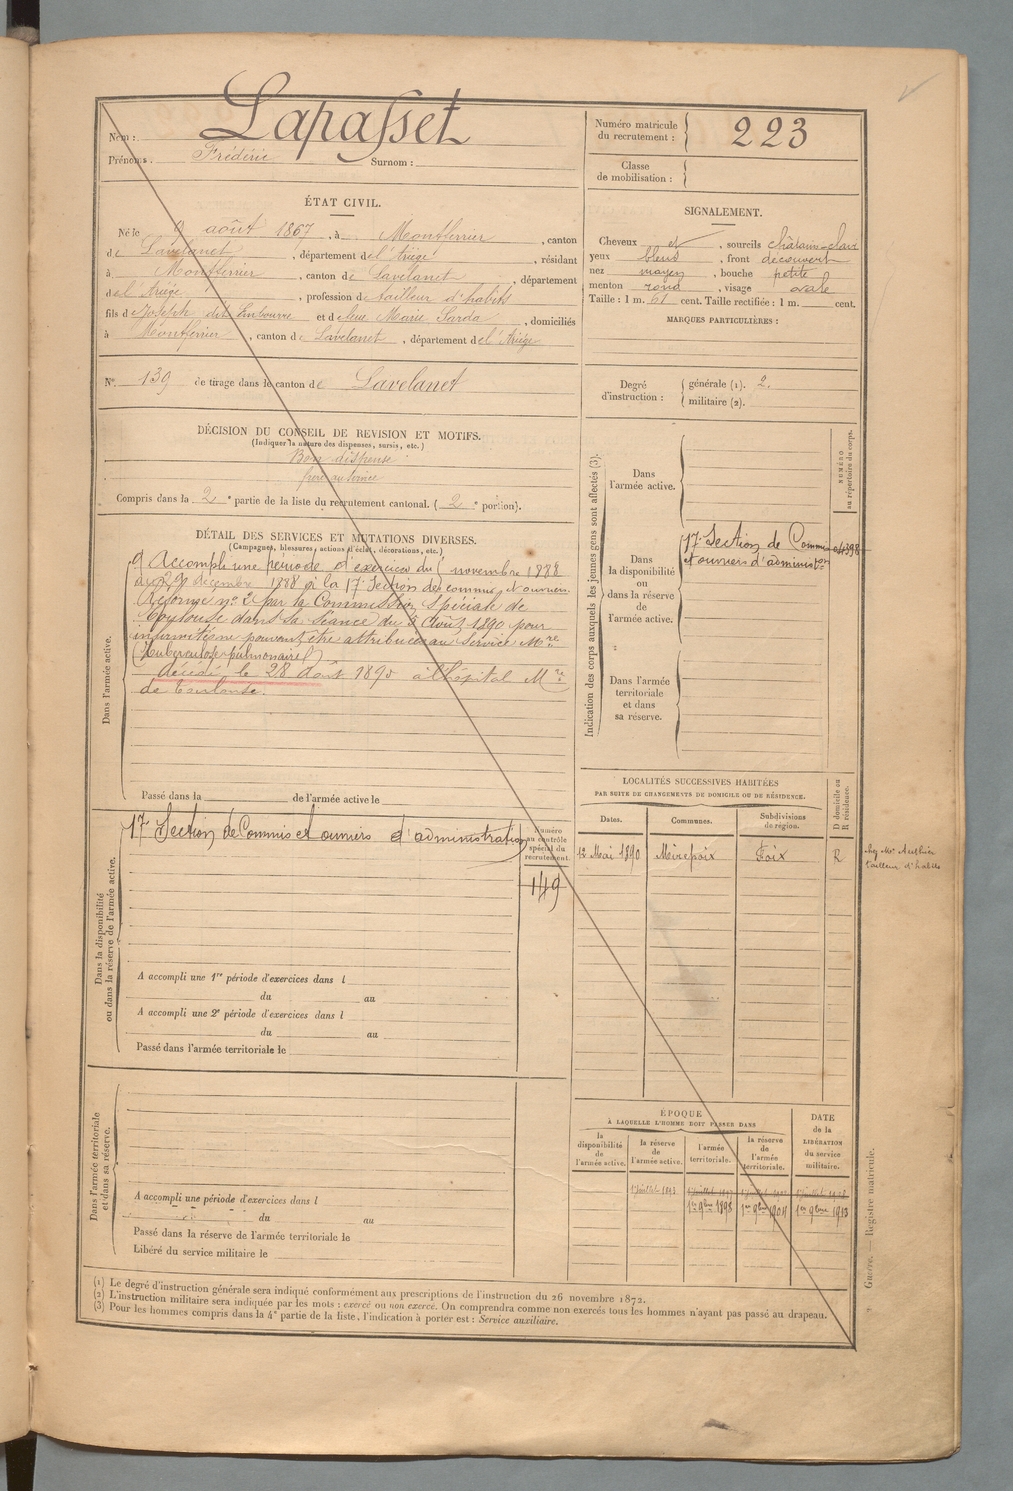 Nom : Lapasset
Prénoms : Frédéric Surnom :
Numéro matricule du recrutement : 223
Classe de mobilisation :
ÉTAT CIVIL.
Né le 9 août 1867, à Montferrier, canton
de Lavelanet, département de l'Ariège, résidant
à Montferrier, canton de Lavelanet, département
de l'Ariège, profession de tailleur d'habits
fils de Joseph dit et de Marie Sarda, domiciliés
à Montferrier, canton de Lavelanet, département de l'Ariège
No. 139 de tirage dans le canton de Lavelanet
SIGNALEMENT.
Cheveux et, sourcils châtains-clairs
yeux bleus, front découvert
nez moyen, bouche petite
menton rond, visage ovale
Taille : 1 m. 61 cent. Taille rectifiée : 1 m. cent.
MARQUES PARTICULIÈRES :
Degré d'instruction : générale (1). 2.
militaire (2).
DÉCISION DU CONSEIL DE REVISION ET MOTIFS.
(Indiquer la nature des dispenses, sursis, etc.)
Bon dispensé
frère au service
Compris dans la 2e partie de la liste du recrutement cantonal. (2e portion).
DÉTAIL DES SERVICES ET MUTATIONS DIVERSES.
(Campagnes, blessures, actions d'éclat, décorations, etc.)
Dans l'armée active.
A Accompli une période d'exercice du novembre 1888
au 29 décembre 1888 à la 17e Section de commis et ouvriers.
Réformé no 2 par la Commission Spéciale de
Toulouse dans sa Séance du 5 Août 1890 pour
infirmités ne pouvant être attribuées au Service Mre
(tuberculose pulmonaire)
décédé le 28 août 1890 à l'hôpital Mre
de Toulouse.
Passé dans la de l'armée active le
Dans la disponibilité ou dans la réserve de l'armée active.
17e Section de Commis et Ouvriers d'administration
Numéro au contrôle spécial du recrutement.
149
A accompli une 1re période d'exercices dans l
du au
A accompli une 2e période d'exercices dans l
du au
Passé dans l'armée territoriale le
Dans l'armée territoriale et dans sa réserve.
A accompli une période d'exercices dans l
du au
Passé dans la réserve de l'armée territoriale le
Libéré du service militaire le
Indication des corps auxquels les jeunes gens sont affectés (3).
NUMÉRO au répertoire du corps.
Dans l'armée active.
Dans la disponibilité ou dans la réserve de l'armée active.
17e Section de Commis
et ouvriers d'administon
Dans l'armée territoriale et dans sa réserve.
LOCALITÉS SUCCESSIVES HABITÉES
PAR SUITE DE CHANGEMENTS DE DOMICILE OU DE RÉSIDENCE.
D domicile ou R résidence.
Dates. Communes. Subdivisions de région.
12 Mai 1890 Mirepoix Foix R
chez Mr Authier
tailleur d'habits
ÉPOQUE
À LAQUELLE L'HOMME DOIT PASSER DANS
DATE de la LIBÉRATION du service militaire.
la disponibilité de l'armée active. la réserve de l'armée active. l'armée territoriale. la réserve de l'armée territoriale.
1er 9bre 1898 1er 9bre 1904 1er 9bre 1913
(1) Le degré d'instruction générale sera indiqué conformément aux prescriptions de l'instruction du 26 novembre 1872.
(2) L'instruction militaire sera indiquée par les mots : exercé ou non exercé. On comprendra comme non exercés tous les hommes n'ayant pas passé au drapeau.
(3) Pour les hommes compris dans la 4e partie de la liste, l'indication à porter est : Service auxiliaire.
Guerre. — Registre matricule.